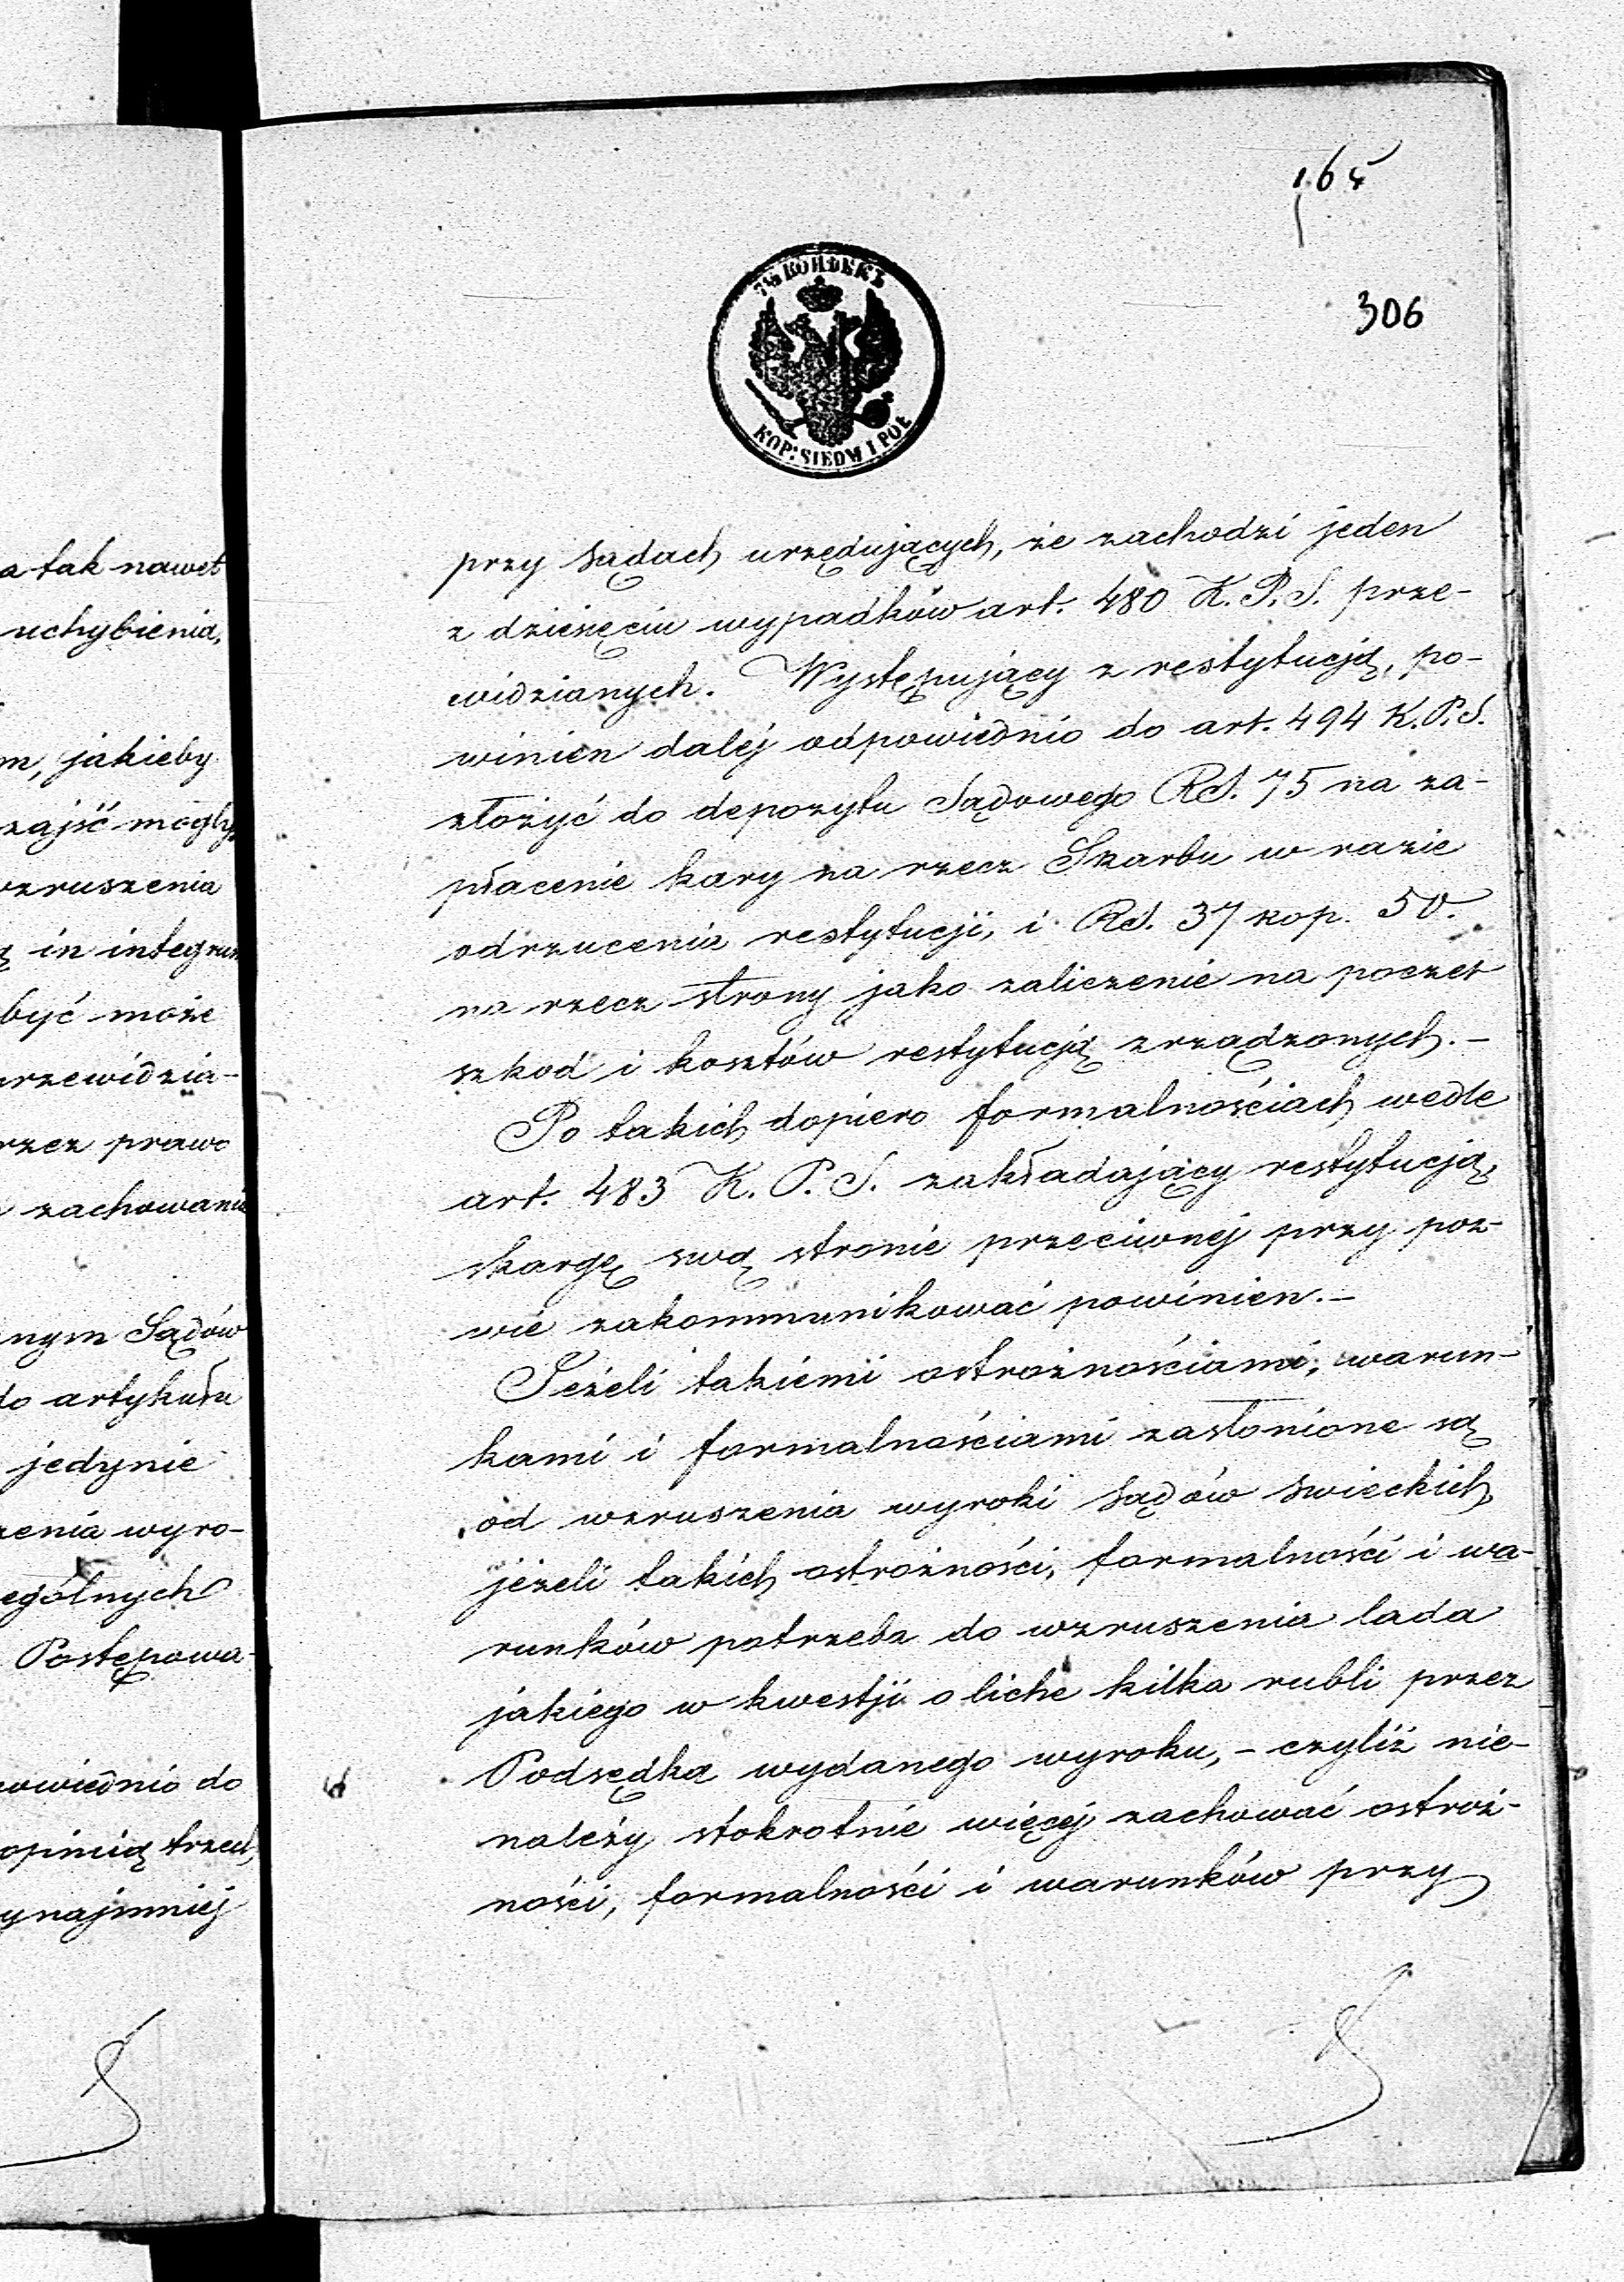 a tak nawet
uchybienia,
m, jakieby
zajść mogły,
wzruszenia
ą in integrum
być może
przewidzia-
rzez prawo
zachowania
nym Sądów
do artykułu
jedynie
zenia wyro-
ególnych
Postępowa-
powiednio do
opinią trzech
ynajmniej
165
306
7½ КОПѢЕКЪ
KOP: SIEDM I PÓŁ
przy Sądach urzędujących, że zachodzi jeden
z dziesięciu wypadków art. 480 K. P. S. prze-
widzianych. Występujący z restytucją, po-
winien dalej odpowiednio do art. 494 K. P. S.
złożyć do depozytu Sądowego RS. 75 na za-
płacenie kary na rzecz Skarbu w razie
odrzucenia restytucji, i RS. 37 kop. 50.
na rzecz strony jako zaliczenie na poczet
szkod i kosztów restytucją zrządzonych. –
Po takich dopiero formalnościach wedle
art. 483 K. P. S. zakładający restytucją,
skargę swą stronie przeciwnej przy poz-
wie zakommunikować powinien. –
Jeżeli takiemi ostrożnościami, warun-
kami i formalnościami zasłonione są
od wzruszenia wyroki Sądów Swieckich,
jeżeli takich ostrożności, formalności i wa-
runków potrzeba do wzruszenia lada
jakiego w kwestji o liche kilka rubli przez
Podsędka wydanego wyroku, – czyliż nie-
należy stokrotnie więcej zachować ostroż-
ności, formalności i warunków przy